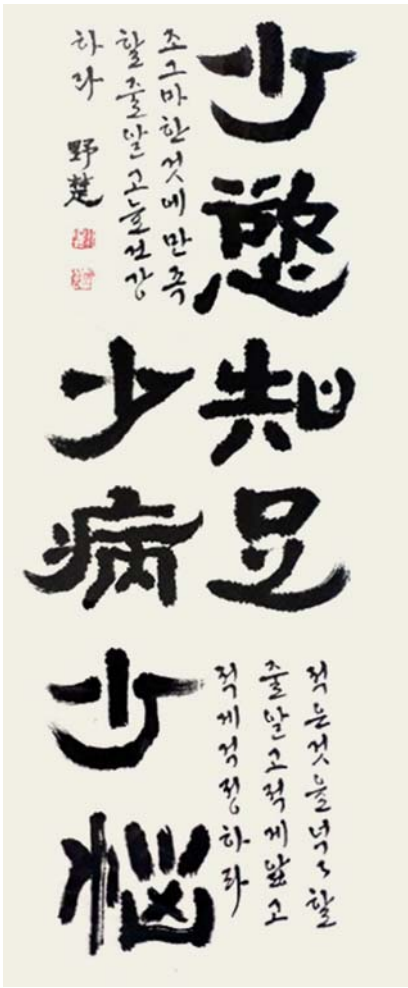 少慾知足
少病少惱
적은것을넉々할
줄알고적게앓고
적게걱정하라
조그마한것에만족
할줄알고늘건강
하라
野楚